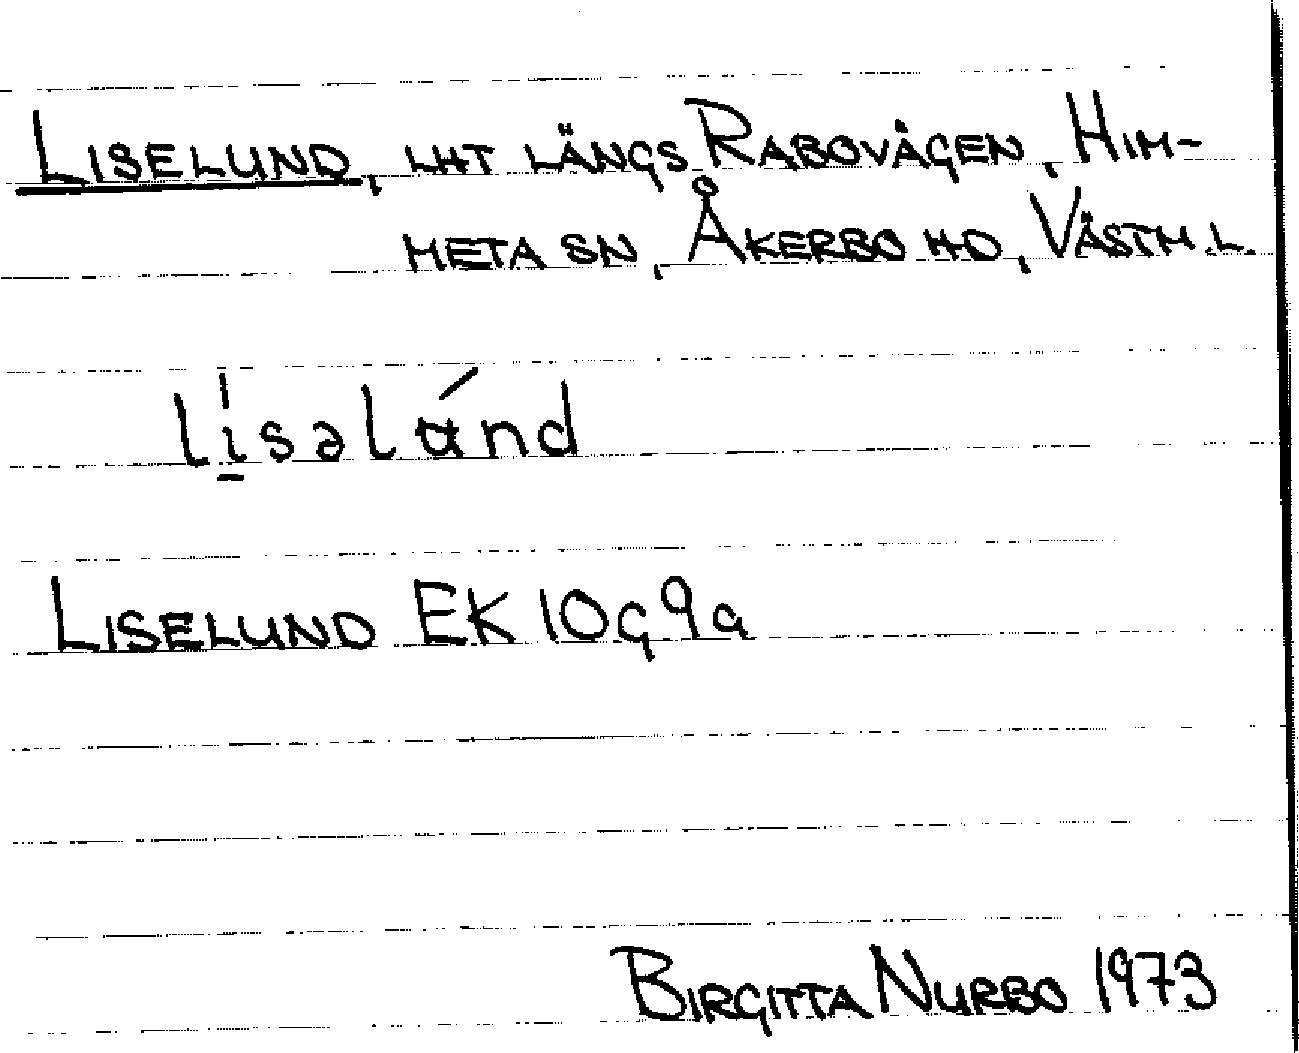 LISELUND, LHT LÄNGS RABOVÄGEN, HIM-
META SN, ÅKERBO HD, VÄSTM.L.
lisəlánd
LISELUND EK 10G9a
BIRGITTA NURBO 1973